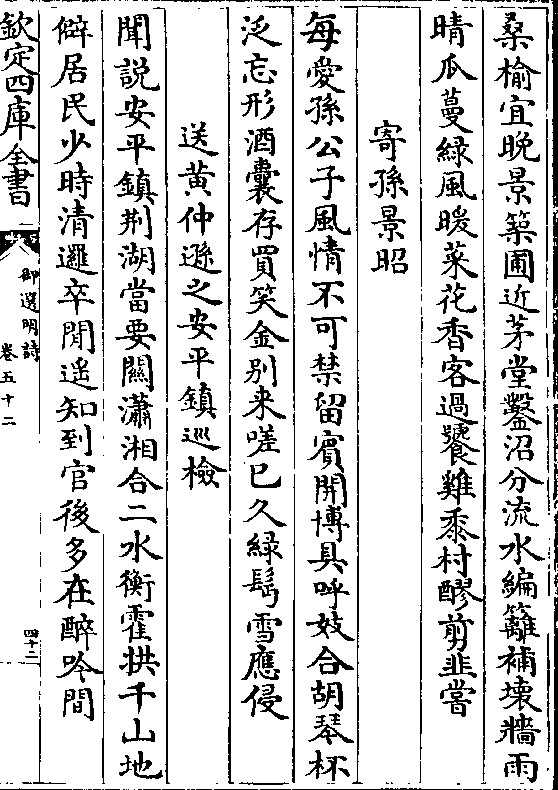 桑榆宜晚景築圃近茅堂鑿沼分流水編籬補壞牆雨
晴瓜蔓綠風暖菜花香客過饗雞黍村醪剪韭嘗
寄孫景昭
每愛孫公子風情不可禁留賓開博具呼妓合胡琴杯
泛忘形酒囊存買笑金別来嗟巳久綠髩雪應侵
送黄仲遜之安平鎮巡檢
聞說安平鎮荆湖當要關瀟湘合二水衡霍拱千山地
僻居民少時清邏卒閒遥知到官後多在醉吟間
欽定四庫全書
御選明詩
卷五十二
四十二